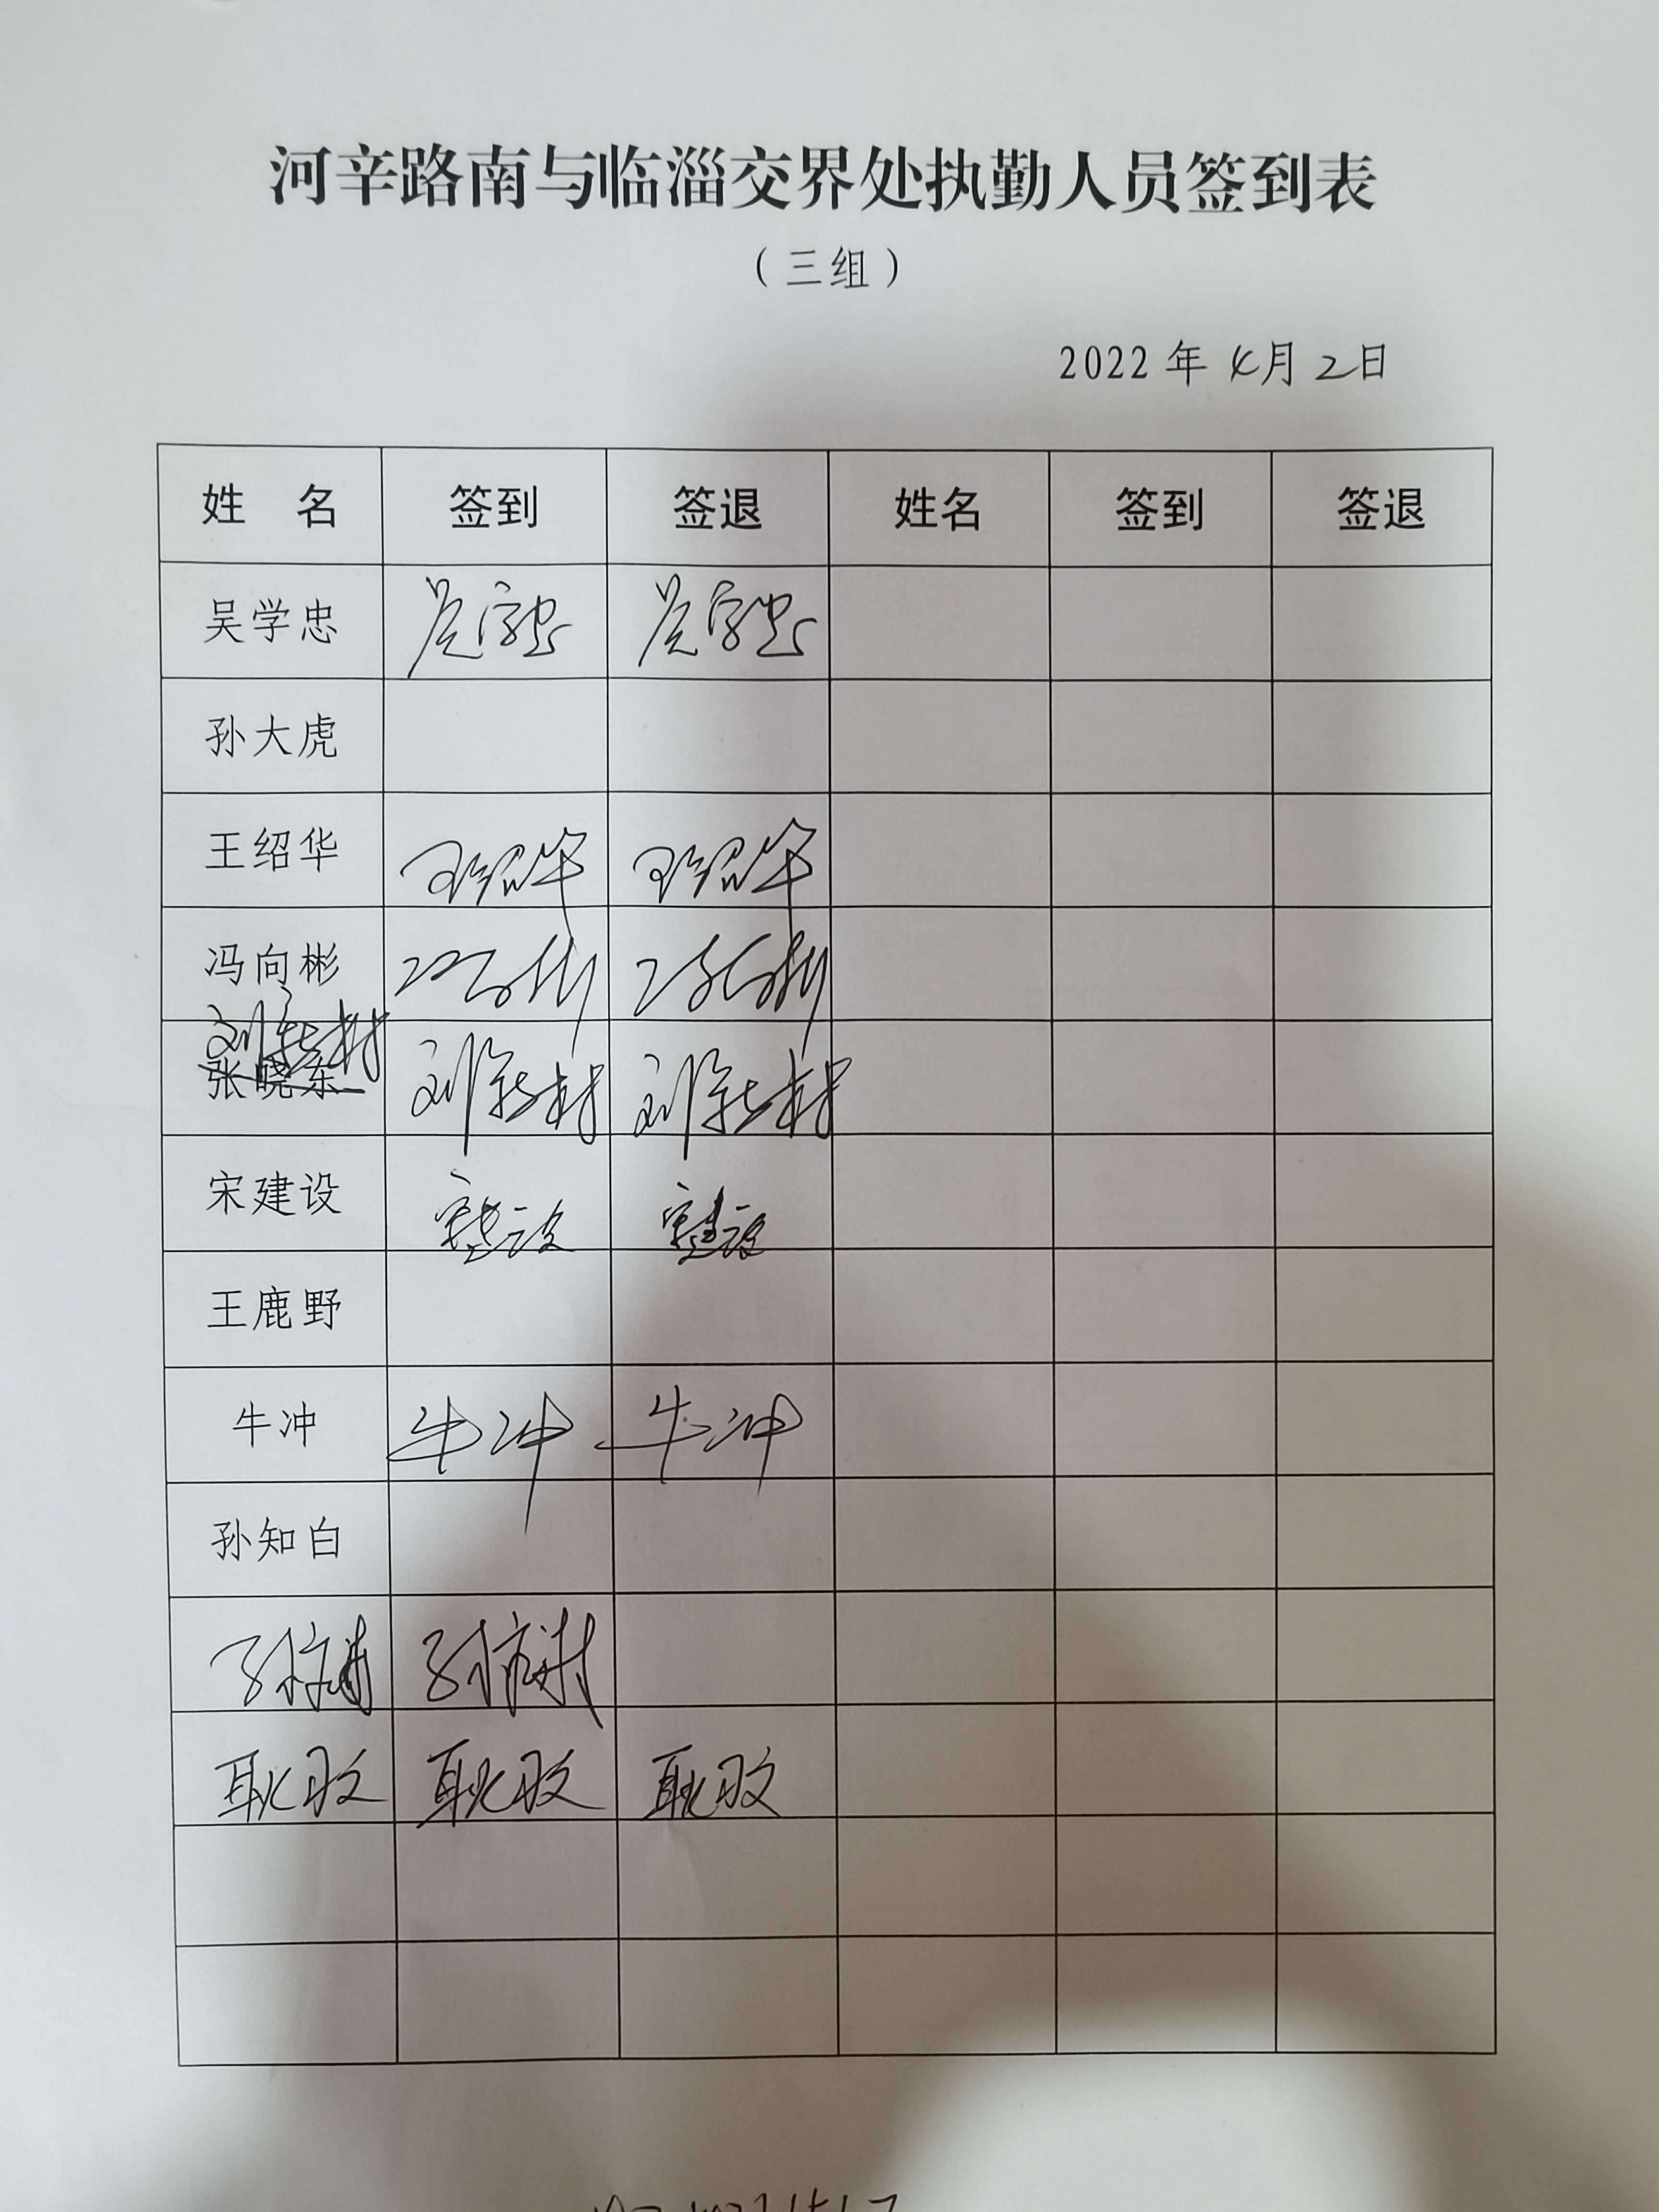 河辛路南与临淄交界处执勤人员签到表
（三组）
2022 年 4月 2日
姓 名 签到 签退 姓名 签到 签退
吴学忠 吴学忠 吴学忠
孙大虎
王绍华 王绍华 王绍华
冯向彬 冯向彬 冯向彬
张晓东
宋建设 宋建设 宋建设
王鹿野
牛冲 牛冲 牛冲
孙知白
耿政 耿政 耿政